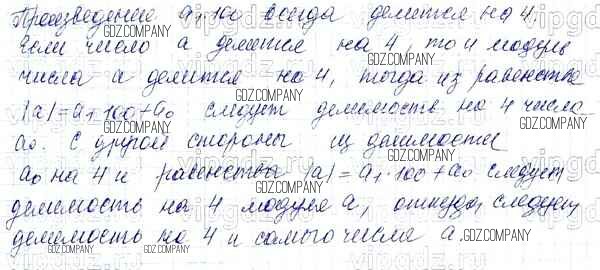 Произведение a₁·100 всегда делится на 4.
Если число a делится на 4, то и модуль
числа a делится на 4, тогда из равенства
|a|=a₁·100+a₀ следует делимость на 4 числа
a₀. С другой стороны из делимости
a₀ на 4 и равенства |a|=a₁·100+a₀ следует
делимость на 4 модуля a, откуда следует
делимость на 4 и самого числа a.
GDZ.COMPANY
GDZ.COMPANY
GDZ.COMPANY
GDZ.COMPANY
GDZ.COMPANY
GDZ.COMPANY
GDZ.COMPANY
GDZ.COMPANY